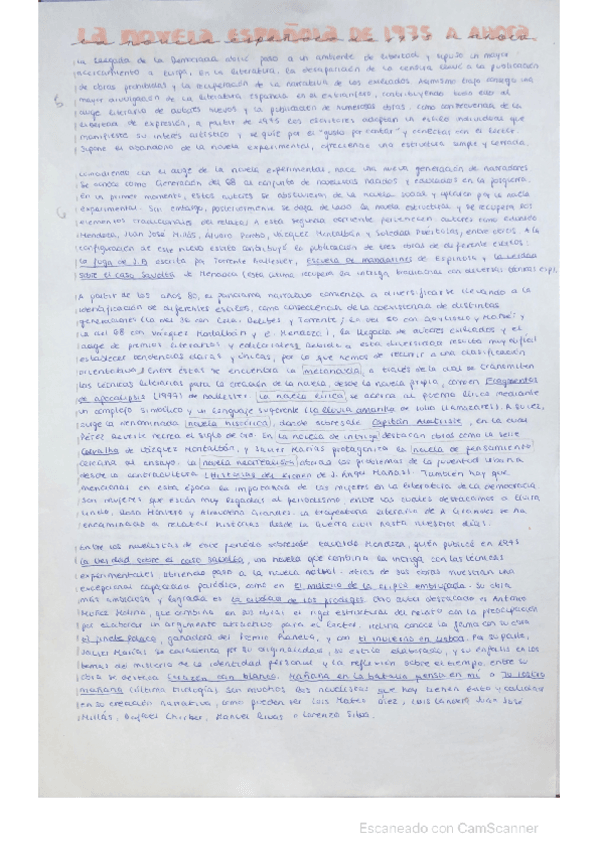 LA NOVELA ESPAÑOLA DE 1975 A AHORA
La llegada de la Democracia abrió paso a un ambiente de libertad y supuso un mayor
acercamiento a Europa. En la literatura, la desaparición de la censura llevó a la publicación
de obras prohibidas y la recuperación de la narrativa de los exiliados. Asimismo trajo consigo una
mayor divulgación de la literatura española en el extranjero, contribuyendo todo esto al
auge literario de autores nuevos y la publicación de numerosas obras. Como consecuencia de la
libertad de expresión, a partir de 1975 los escritores adoptan un estilo individual que
manifiesta su interés artístico y se guía por el "gusto por contar" y conectar con el lector.
Supone el abandono de la novela experimental, ofreciendo una estructura simple y cerrada.
Coincidiendo con el auge de la novela experimental, nace una nueva generación de narradores
Se conoce como Generación del 68 al conjunto de novelistas nacidos y educados en la posguerra.
En un primer momento, estos autores se de la novela social y optaron por la novela
experimental. Sin embargo, posteriormente se deja de lado la novela estructural y se recuperan los
elementos tradicionales del relato. A esta segunda corriente pertenecen autores como Eduardo
Mendoza, Juan José Millás, Álvaro Pombo, Vázquez Montalbán y Soledad Puértolas, entre otros. A la
configuración de este nuevo estilo contribuyó la publicación de tres obras de diferente estilo:
La fuga de J.B escrita por Torrente Ballester, Escuela de mandarines de Espinosa y La verdad
sobre el caso Savolta de Mendoza (esta última recupera la intriga
A partir de los años 80, el panorama narrativo comienza a diversificarse llevando a la
identificación de diferentes estilos, como consecuencia de la coexistencia de distintas
generaciones (la del 36 con Cela, Delibes y Torrente; la del 50 con Goytisolo y Marsé; y
la del 68 con Vázquez Montalbán y E. Mendoza), la llegada de autores exiliados y el
auge de premios literarios y editoriales. Debido a esta diversidad resulta muy difícil
establecer tendencias claras y únicas, por lo que hemos de recurrir a una clasificación
orientativa. Entre estas se encuentra la metanovela, a través de la cual se transmiten
las técnicas literarias para la creación de la novela, desde la novela propia, como en Fragmentos
de apocalipsis (1977) de Ballester. La novela lírica se acerca al poema lírico mediante
un complejo simbólico y un lenguaje sugerente (La lluvia amarilla de Julio Llamazares). A su vez,
surge la denominada novela histórica, donde sobresale Capitán Alatriste, en la cual
Pérez Reverte recrea el siglo de oro. En la novela de intriga destacan obras como la serie
Carvalho de Vázquez Montalbán, y Javier Marías protagoniza la novela de pensamiento
cercana al ensayo. La novela neorrealista aborda los problemas de la juventud urbana
desde la contracultura (Historias del Kronen de J. Ángel Mañas). También hay que
mencionar en esta época la importancia de las mujeres en la literatura de la democracia.
Son mujeres que están muy ligadas al periodismo, entre las cuales destacamos a Elvira
Lindo, Rosa Montero y Almudena Grandes. La trayectoria literaria de A. Grandes se ha
encaminado a relatar historias desde la guerra civil hasta nuestros días.
Entre los novelistas de este período sobresale Eduardo Mendoza, quién publicó en 1975
La verdad sobre el caso Savolta, una novela que combina la intriga con las técnicas
experimentales abriendo paso a la novela actual. Otras de sus obras muestran una
excepcional capacidad paródica, como en El misterio de la cripta embrujada. Su obra
más ambiciosa y lograda es La ciudad de los prodigios. Otro autor destacado es Antonio
Muñoz Molina, que combina en sus obras el rigor estructural del relato con la preocupación
por elaborar un argumento atractivo para el lector. Molina conoce la fama con su obra
El jinete polaco, ganadora del Premio Planeta, y con El invierno en Lisboa. Por su parte,
Javier Marías se caracteriza por su originalidad, su estilo elaborado, y su énfasis en los
temas del misterio de la identidad personal y la reflexión sobre el tiempo. Entre su
obra se destaca Corazón tan blanco, Mañana en la batalla piensa en mí o Tu rostro
mañana (última trilogía). Son muchos los novelistas que hoy tienen éxito y calidad
en su creación narrativa, como pueden ser Luis Mateo Díez, Luis Landero, Juan José
Millás, Rafael Chirbes, Manuel Rivas o Lorenzo Silva.
Escaneado con CamScanner